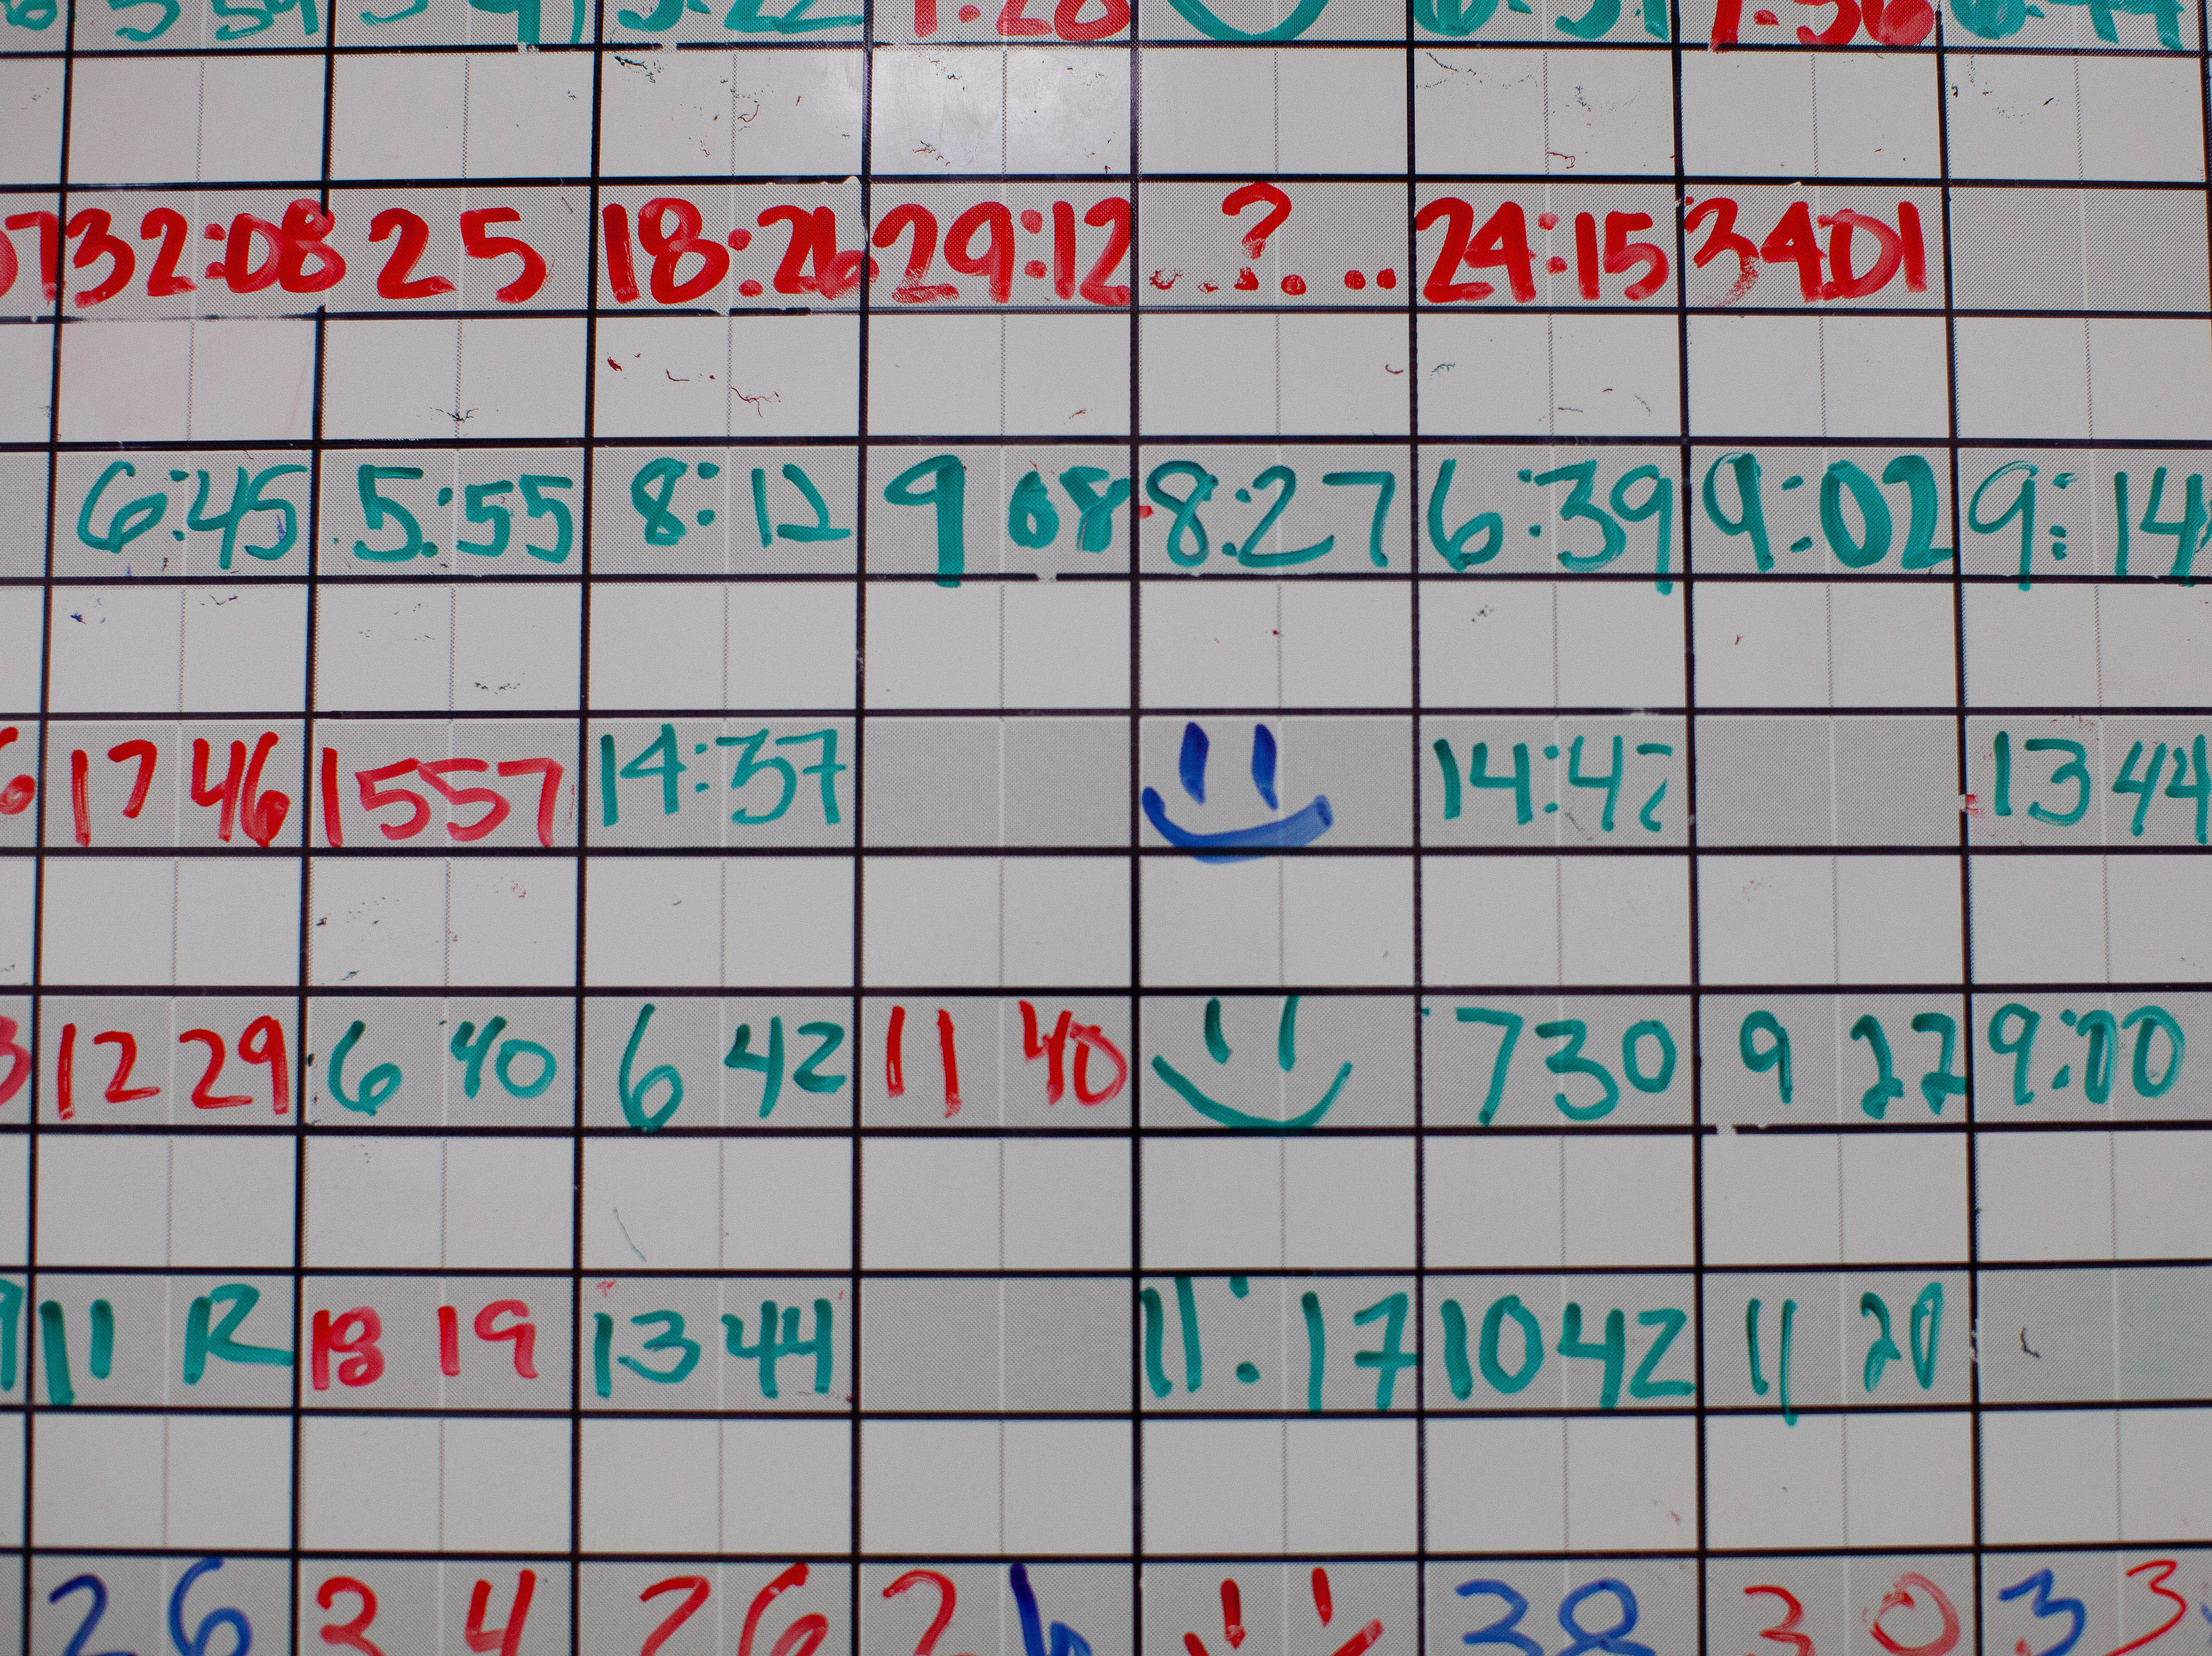 32:08 25 18:26 29:12 ..?. .. 24:15 3401
6:45 5:55 8:12 9 08 8:27 6:39 9:02 9:14
17 46 1557 14:37 14:42 13 44
12 29 6 40 6 42 11 40 730 9 22 9:00
11 R 18 19 13 44 11:17 1042 11 20
26 34 26 2 38 30 33